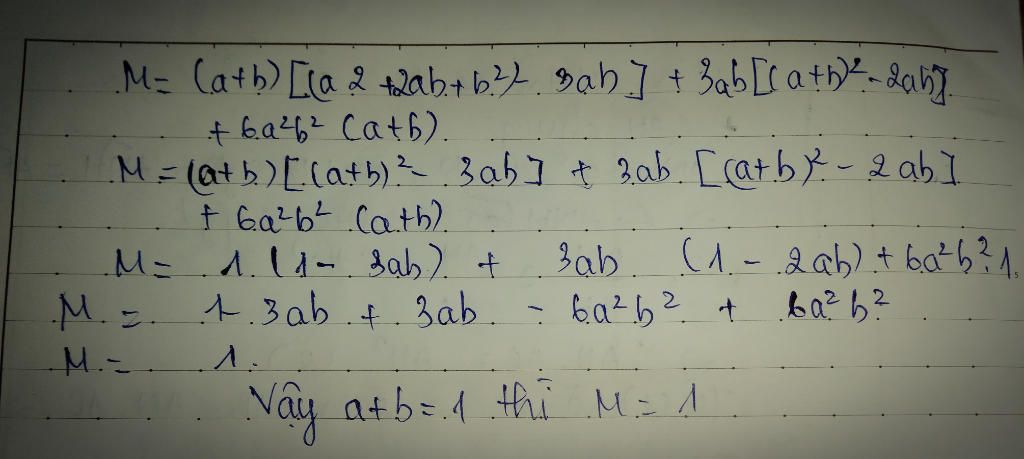 M= (a+b) [(a 2 +2ab+b²)- 3ab] + 3ab[(a+b)²-2ab]
+ 6a²b² (a+b)
M=(a+b)[(a+b)²- 3ab] + 3ab [(a+b)² - 2ab]
+ 6a²b² (a+b)
M= 1.(1- 3ab) + 3ab (1 - 2ab) + 6a²b².1.
M = 1- 3ab + 3ab - 6a²b² + 6a²b²
M = 1.
Vậy a+b=1 thì M=1